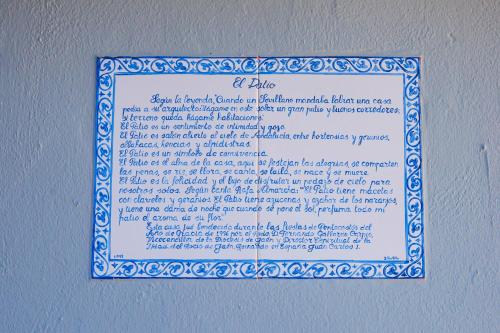 El Patio
Según la leyenda, "Cuando un Sevillano mandaba labrar una casa
pedia a su arquitecto: Hágame en este solar un gran patio y buenos corredores;
si terreno queda hágame habitaciones".
El Patio es un sentimiento de intimidad y gozo.
El Patio es salón abierto al cielo de Andalucía, entre hortensias y geranios,
albahacas, kencias y aspidistras.
El Patio es un símbolo de convivencia.
El Patio es el alma de la casa, aquí se festejan las alegrías, se comparten
las penas, se ríe, se llora, se canta, se baila, se nace y se muere.
El Patio es la felicidad y el lujo de disfrutar un pedazo de cielo para
nosotros solos. Según canta Rafa Almarcha: "El Patio tiene macetas
con claveles y geranios. El Patio tiene azucenas y azahar de los naranjos,
y tiene una dama de noche que cuando se pone el sol, perfuma todo mi
patio el aroma de su flor".
Esta casa fué bendecida durante las fiestas de Pentecostés del
Año de Gracia de 1996 por el Rvdo. D. Fernando Gallardo Carpio,
Vicecanciller de la Diócesis de Jaén y Director Espiritual de la
Hdad. del Rocío de Jaén, Reinando en España Juan Carlos I.